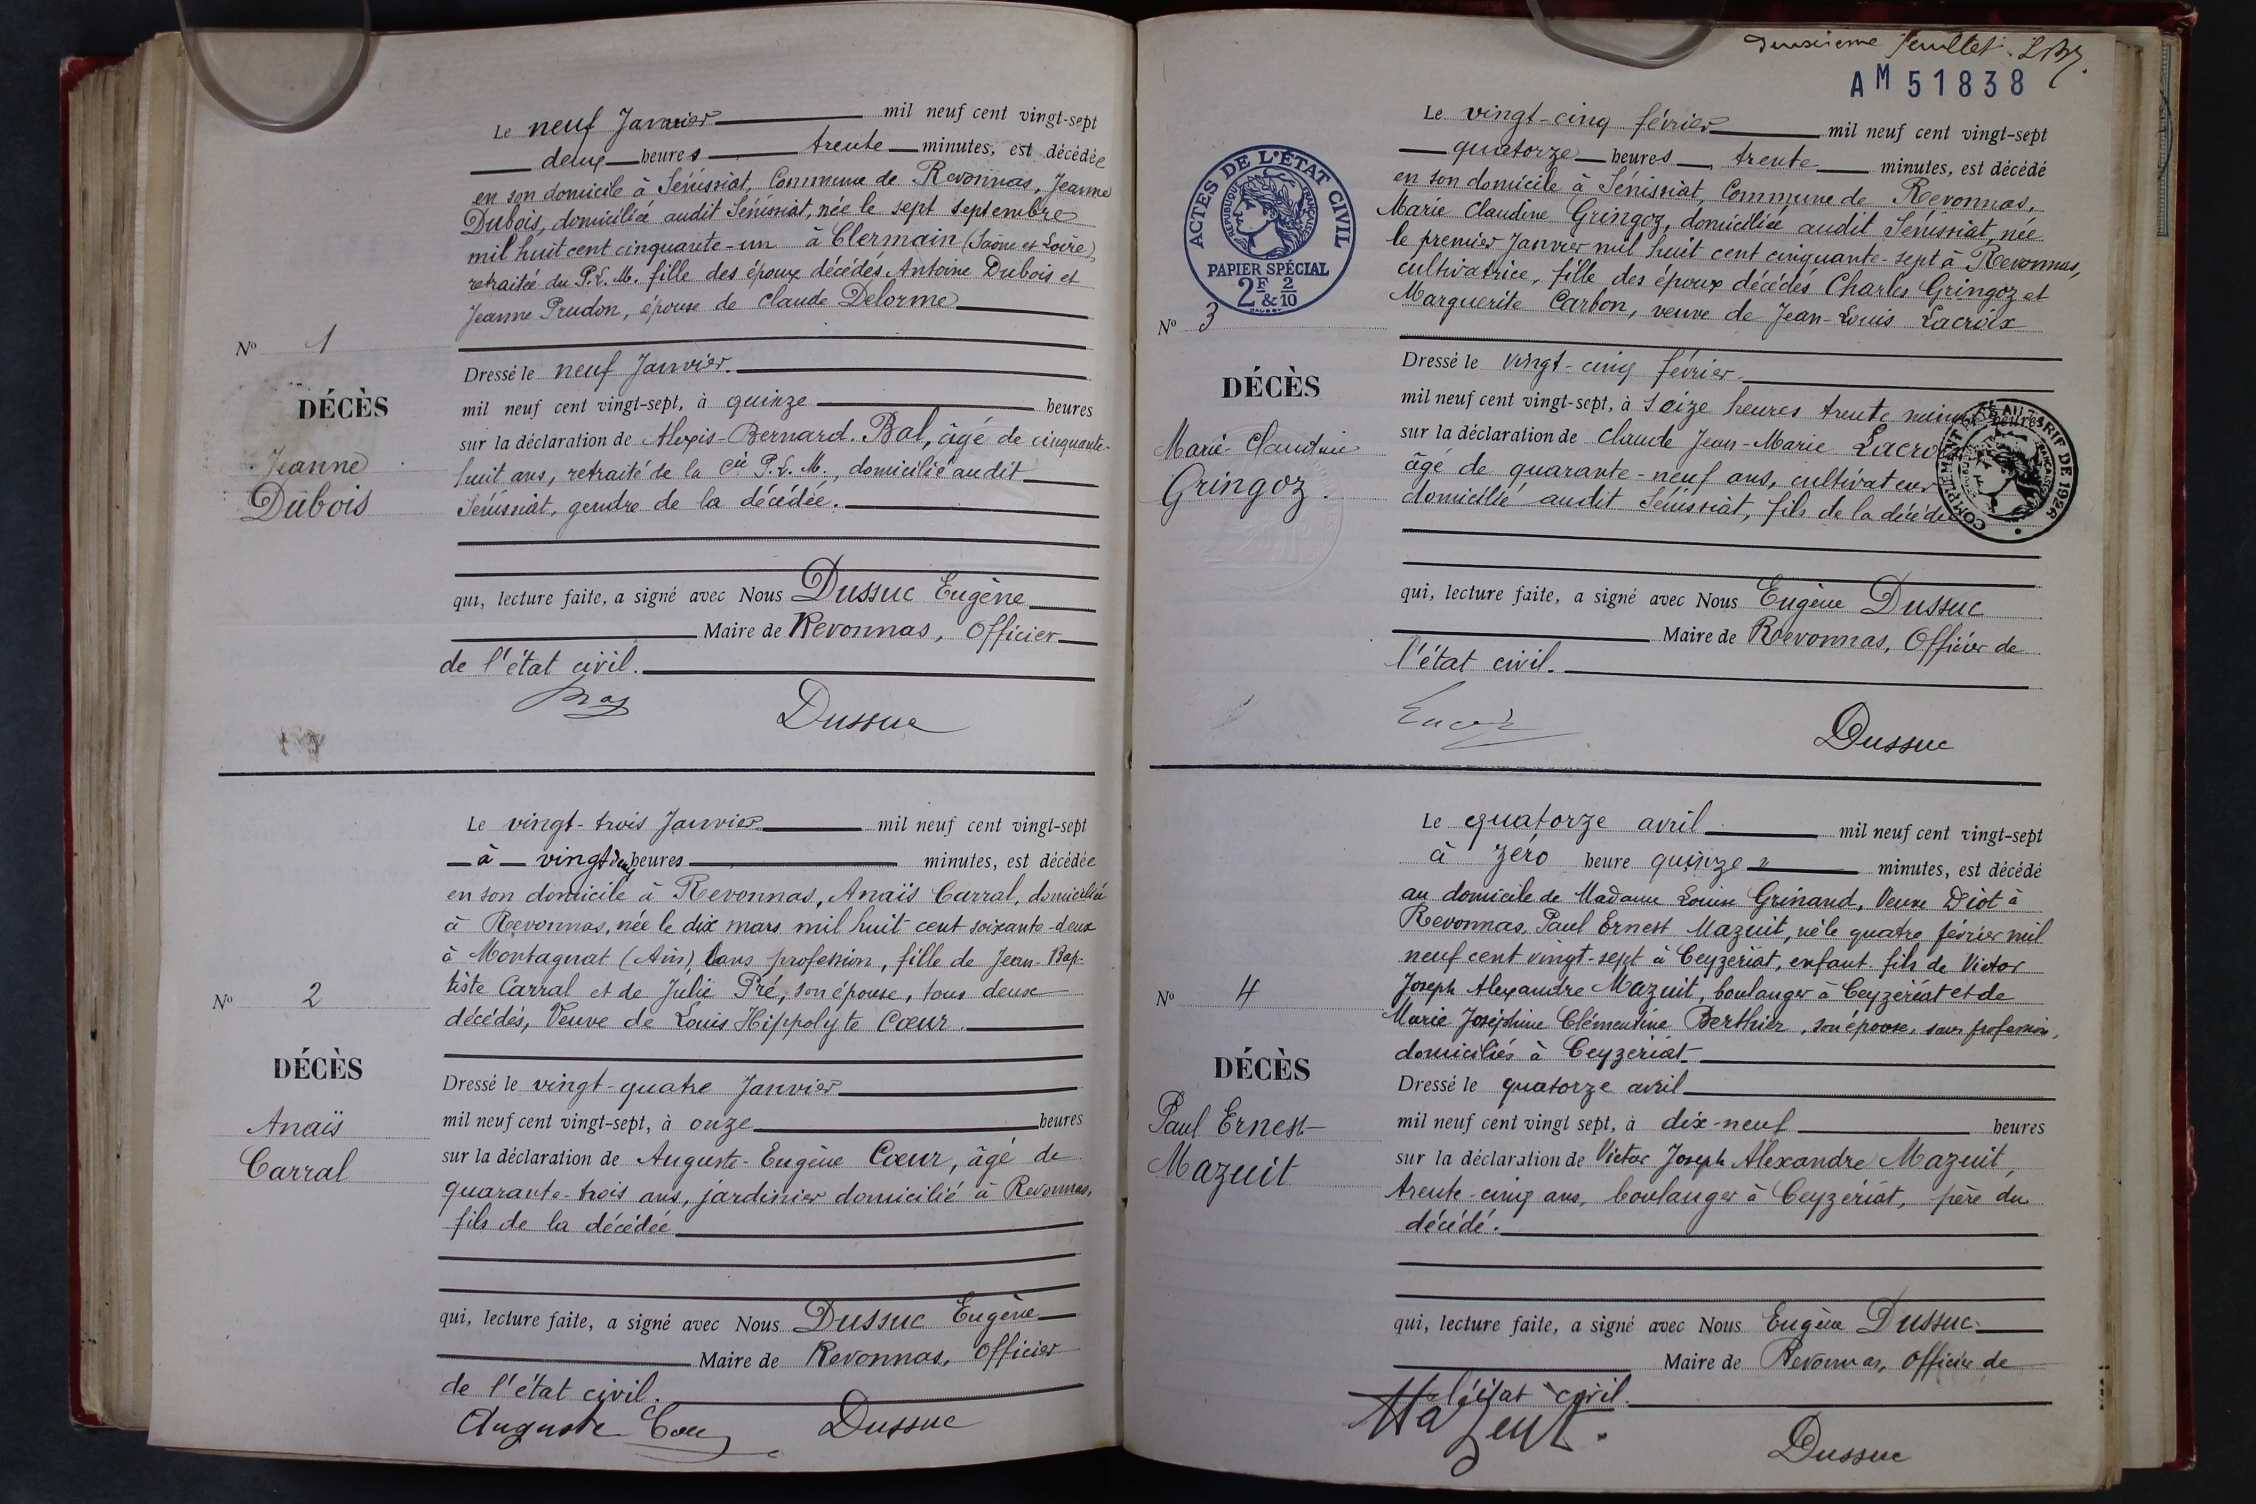 Le neuf Janvier mil neuf cent vingt-sept
deux heures trente minutes, est décédée
en son domicile à Sénissiat, Commune de Revonnas, Jeanne
Dubois, domiciliée audit Sénissiat, née le sept septembre
mil huit cent cinquante-un à Clermain (Saône et Loire),
retraitée du P.L.M. fille des époux décédés Antoine Dubois et
Jeanne Prudon, épouse de Claude Delorme
No 1
DÉCÈS
Jeanne
Dubois
Dressé le neuf Janvier.
mil neuf cent vingt-sept, à quinze heures
sur la déclaration de Alexis-Bernard Bal, âgé de cinquante-
huit ans, retraité de la Cie P.L.M., domicilié audit
Sénissiat, gendre de la décédée.
qui, lecture faite, a signé avec Nous Dussuc Eugène
Maire de Revonnas, Officier
de l'état civil.
Dussuc
Le vingt-trois Janvier mil neuf cent vingt-sept
à vingt deux heures minutes, est décédée
en son domicile à Revonnas, Anaïs Carral, domiciliée
à Revonnas, née le dix mars mil huit cent soixante-deux
à Montagnat (Ain), sans profession, fille de Jean-Bap-
tiste Carral et de Julie Pré, son épouse, tous deux
décédés, Veuve de Louis Hippolyte Cœur.
No 2
DÉCÈS
Anaïs
Carral
Dressé le vingt-quatre Janvier
mil neuf cent vingt-sept, à onze heures
sur la déclaration de Auguste-Eugène Cœur, âgé de
quarante-trois ans, jardinier domicilié à Revonnas,
fils de la décédée
qui, lecture faite, a signé avec Nous Dussuc Eugène
Maire de Revonnas, Officier
de l'état civil.
Auguste Cœur Dussuc
Deuxième feuillet.
AM 51838
ACTES DE L'ÉTAT CIVIL
RÉPUBLIQUE FRANÇAISE
PAPIER SPÉCIAL
2F & 2/10
Le vingt-cinq février mil neuf cent vingt-sept
quatorze heures trente minutes, est décédé
en son domicile à Sénissiat, Commune de Revonnas,
Marie Claudine Gringoz, domiciliée audit Sénissiat, née
le premier Janvier mil huit cent cinquante-sept à Revonnas,
cultivatrice, fille des époux décédés Charles Gringoz et
Marguerite Carbon, veuve de Jean-Louis Lacroix
No 3
DÉCÈS
Marie-Claudine
Gringoz.
Dressé le vingt-cinq février
mil neuf cent vingt-sept, à seize heures trente minutes heures
sur la déclaration de Claude Jean-Marie Lacroix
âgé de quarante-neuf ans, cultivateur
domicilié audit Sénissiat, fils de la décédée
COMPLÉMENT AU TARIF DE 1926
qui, lecture faite, a signé avec Nous Eugène Dussuc
Maire de Revonnas, Officier de
l'état civil.
Dussuc
Le quatorze avril mil neuf cent vingt-sept
à zéro heure quinze minutes, est décédé
au domicile de Madame Louise Grinand, Veuve Diot à
Revonnas, Paul Ernest Mazuit, né le quatre février mil
neuf cent vingt-sept à Ceyzériat, enfant fils de Victor
Joseph Alexandre Mazuit, boulanger à Ceyzériat et de
Marie Joséphine Clémentine Berthier, son épouse, sans profession,
domiciliés à Ceyzériat
No 4
DÉCÈS
Paul Ernest
Mazuit
Dressé le quatorze avril
mil neuf cent vingt sept, à dix-neuf heures
sur la déclaration de Victor Joseph Alexandre Mazuit,
trente-cinq ans, boulanger à Ceyzériat, père du
décédé.
qui, lecture faite, a signé avec Nous Eugène Dussuc
Maire de Revonnas, Officier de
l'état civil.
Mazuit.
Dussuc